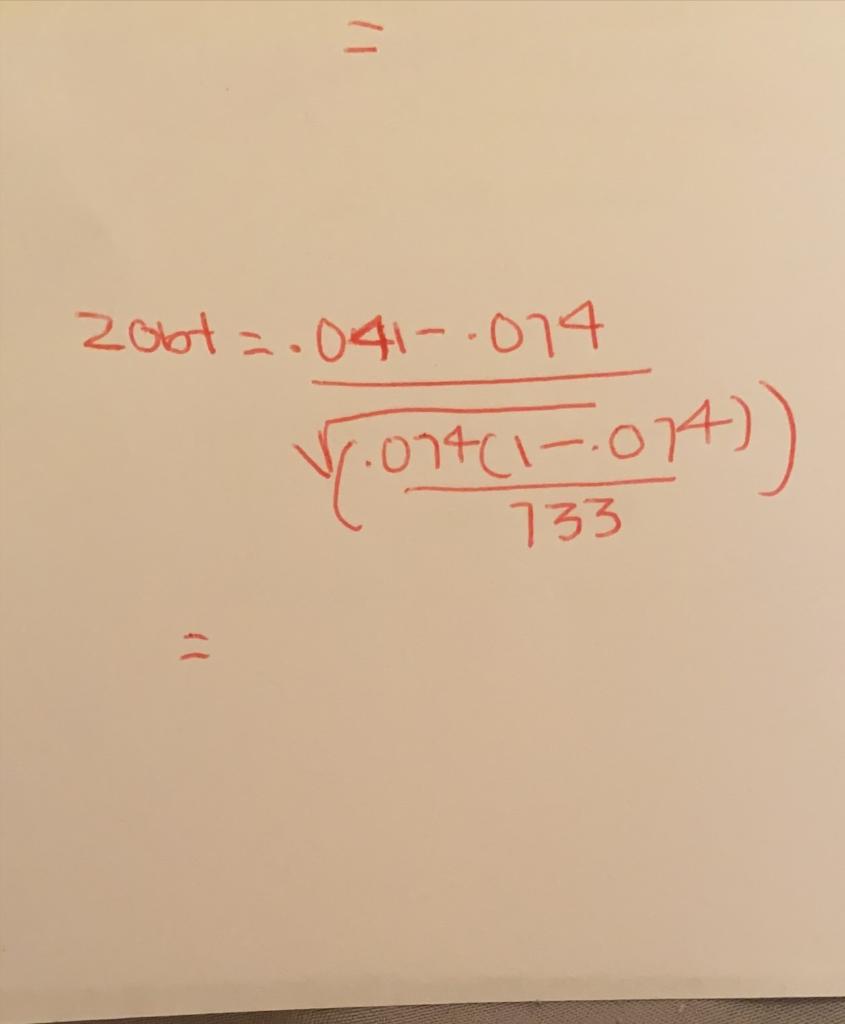 =
Zobt = .041 - .074
√(.074(1-.074))
733
=